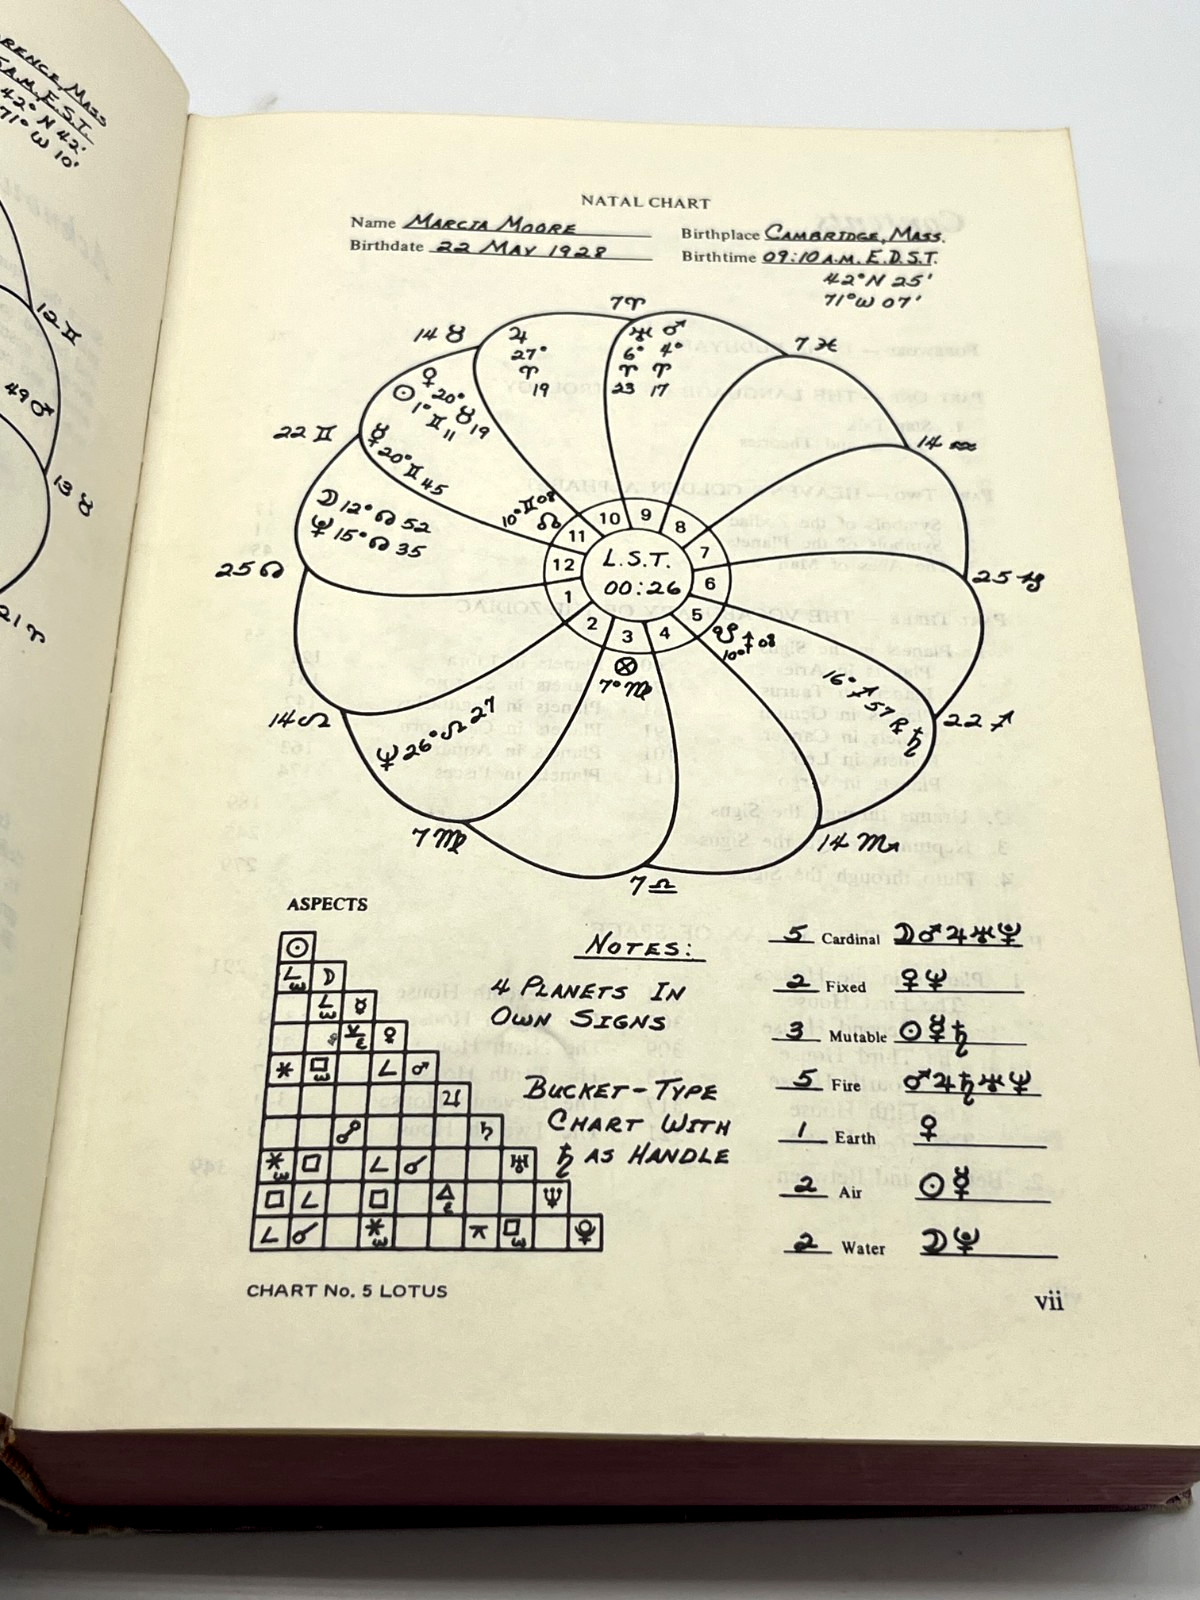 RENCE, MASS
5 A.M. E.S.T.
42° N 42'
71° W 10'
12 ♊
49 ♂
13 ♉
21 ♈
NATAL CHART
Name MARCIA MOORE
Birthplace CAMBRIDGE, MASS.
Birthdate 22 MAY 1928
Birthtime 09:10 A.M. E.D.S.T.
42° N 25'
71° W 07'
7 ♈
14 ♉
7 ♓
♃ 27° ♈ 19
♅ 6° ♈ 23
♂ 4° ♈ 17
♀ 20° ♉ 19
☉ 1° ♊ 11
22 ♊
☿ 20° ♊ 45
14 ♒
☽ 12° ♋ 52
♇ 15° ♋ 35
10° ♊ 08 ☊
25 ♋
25 ♑
10 9 8
11 7
12 6
1 5
2 3 4
L.S.T.
00:26
☋ 10° ♐ 08
⊗
7° ♍
16° ♐ 57 ℞ ♄
22 ♐
14 ♌
♆ 26° ♌ 27
7 ♍
14 ♏
7 ♎
ASPECTS
☉
∠ ω ☽
∠ ω ☿
⚺ ε ♀
⚹ □ ω ∠ ♂
♃
☍ ♄
⚹ ω □ ∠ ☌ ♅
□ ∠ □ △ ε ♆
∠ ☌ ⚹ ω ⚻ □ ω ♇
NOTES:
4 PLANETS IN
OWN SIGNS
BUCKET-TYPE
CHART WITH
♄ AS HANDLE
5 Cardinal ☽ ♂ ♃ ♅ ♇
2 Fixed ♀ ♆
3 Mutable ☉ ☿ ♄
5 Fire ♂ ♃ ♄ ♅ ♆
1 Earth ♀
2 Air ☉ ☿
2 Water ☽ ♇
CHART No. 5 LOTUS
vii